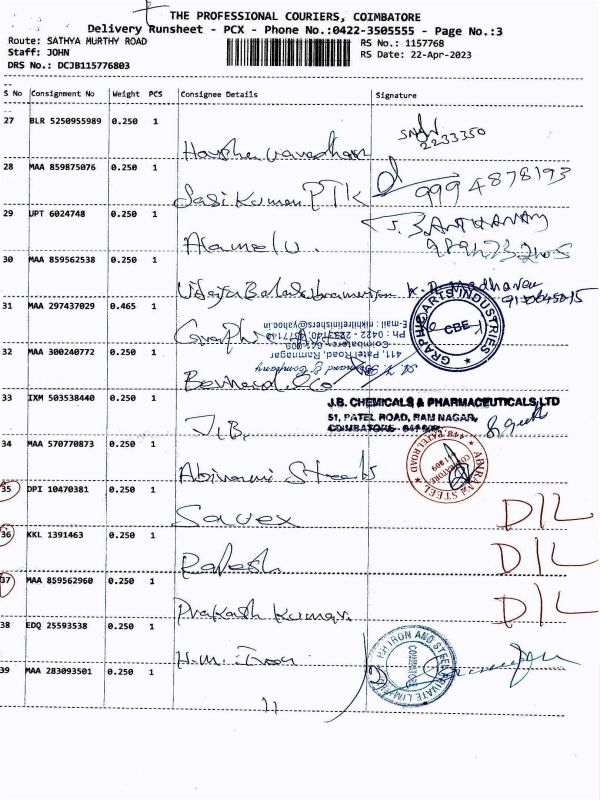 THE PROFESSIONAL COURIERS, COIMBATORE
Delivery Runsheet - PCX - Phone No.:0422-3505555 - Page No.:3
Route: SATHYA MURTHY ROAD
RS No.: 1157768
Staff: JOHN
RS Date: 22-Apr-2023
DRS No.: DCJB115776803
S No Consignment No Weight PCS Consignee Details Signature
27 BLR 5250955989 0.250 1
2233350
28 MAA 859875076 0.250 1
Sasi Kumar PTK 9994878193
29 UPT 6024748 0.250 1
Alamelu.
30 MAA 859562538 0.250 1
31 MAA 297437029 0.465 1
GRAPHIC ARTS INDUSTRIES
CBE
E-mail : nikhilrefinishers@yahoo.in
Coimbatore
411, Patel Road, Ramnagar
32 MAA 300240772 0.250 1
Bernard & Co
33 IXM 503538440 0.250 1
J.B.
J.B. CHEMICALS & PHARMACEUTICALS LTD
51, PATEL ROAD, RAM NAGAR,
COIMBATORE - 641 009
34 MAA 570770873 0.250 1
Abirami Steels
35 DPI 10470381 0.250 1
Savex D/L
36 KKL 1391463 0.250 1
Rajesh D/L
37 MAA 859562960 0.250 1
Prakash Kumar. D/L
38 EDQ 25593538 0.250 1
H.M. Iron
IRON AND STEEL PRIVATE LIMITED
COIMBATORE
39 MAA 283093501 0.250 1
11